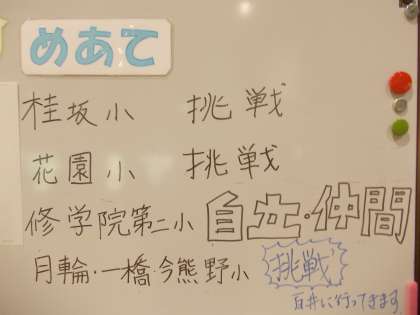 めあて
桂坂小 挑戦
花園小 挑戦
修学院第二小 自立・仲間
月輪・一橋・今熊野小 挑戦
百井に行ってきます